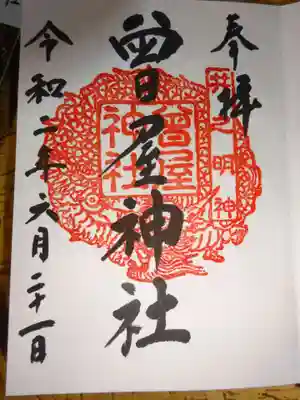 奉拝
曾屋神社
令和二年六月二十一日
曾屋
神社
井之明神